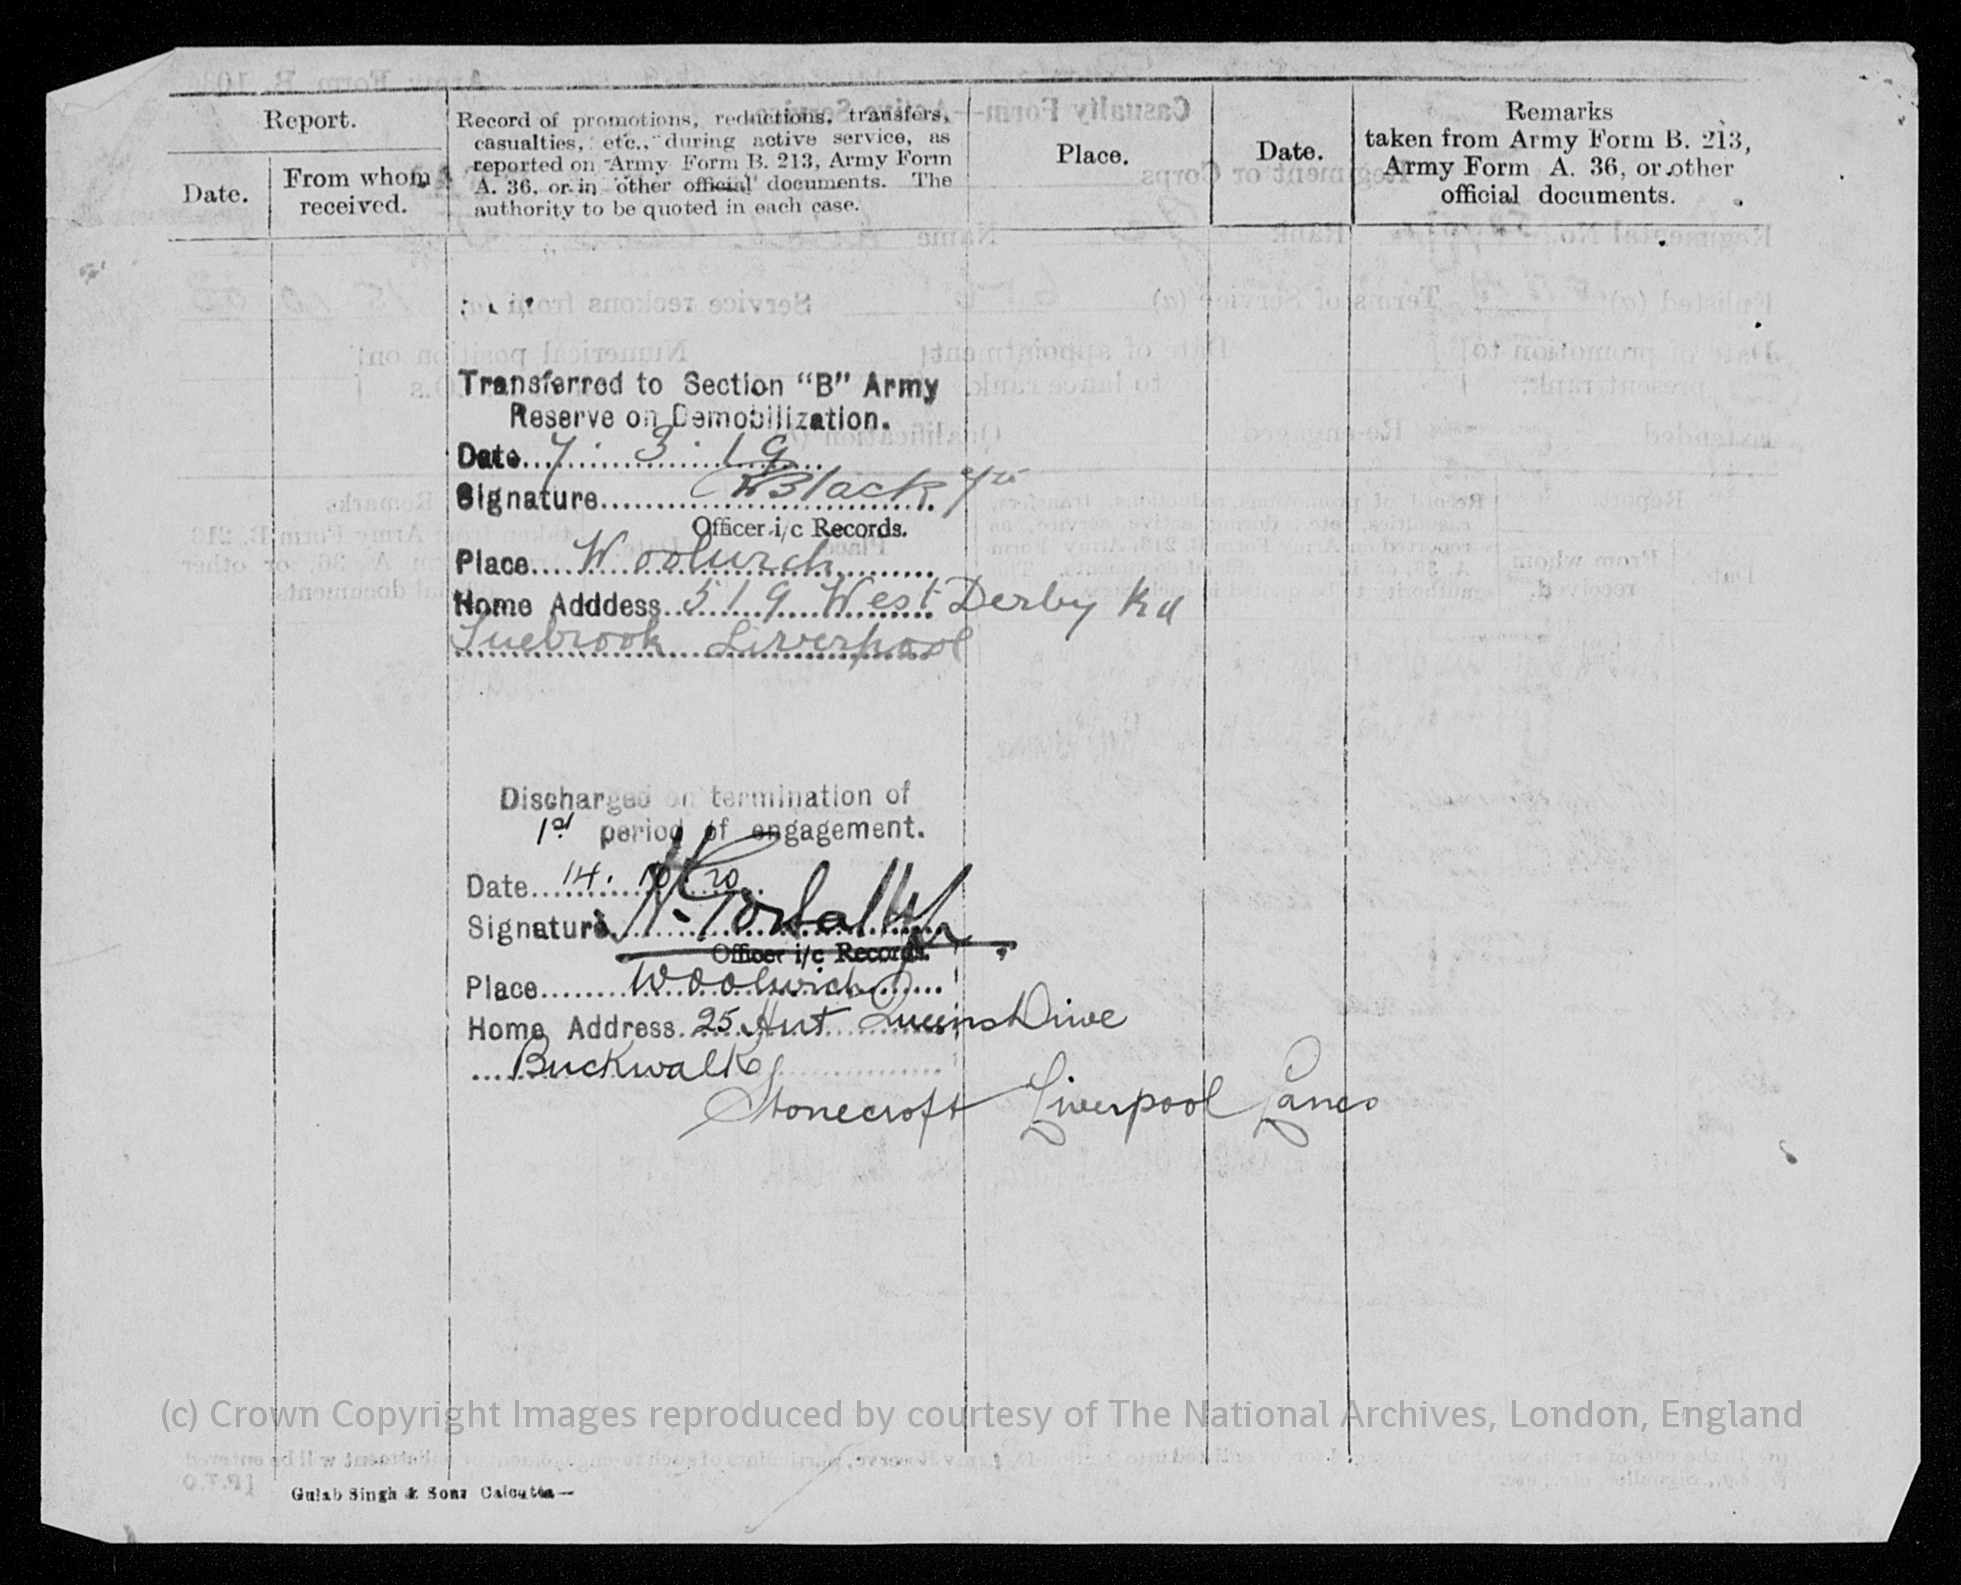 Report.
Date.
From whom
received.
Record of promotions, reductions, transfers,
casualties, etc., during active service, as
reported on Army Form B. 213, Army Form
A. 36, or in other official documents. The
authority to be quoted in each case.
Place.
Date.
Remarks
taken from Army Form B. 213,
Army Form A. 36, or other
official documents.
Transferred to Section "B" Army
Reserve on Demobilization.
Date 7. 3. 19
Signature Black
Officer i/c Records.
Place Woolwich
Home Adddess 519 West Derby Rd
Tuebrook Liverpool
Discharged on termination of
1st period of engagement.
Date 14. 10. 20
Signature
Officer i/c Records.
Place Woolwich
Home Address 25 Hut Queens Drive
Buckwalk
Stonecroft Liverpool Lancs
(c) Crown Copyright Images reproduced by courtesy of The National Archives, London, England
Gulab Singh & Sons Calcutta—